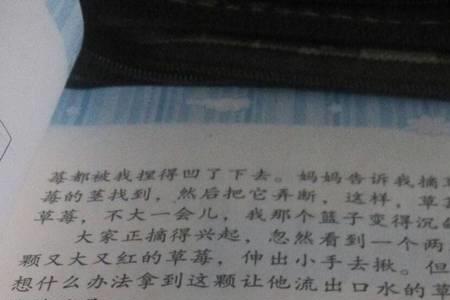 莓都被我捏得凹了下去。妈妈告诉我摘草
莓的茎找到，然后把它弄断，这样，草
草莓，不大一会儿，我那个篮子变得沉
大家正摘得兴起，忽然看到一个两
颗又大又红的草莓，伸出小手去揪。但
想什么办法拿到这颗让他流出口水的草